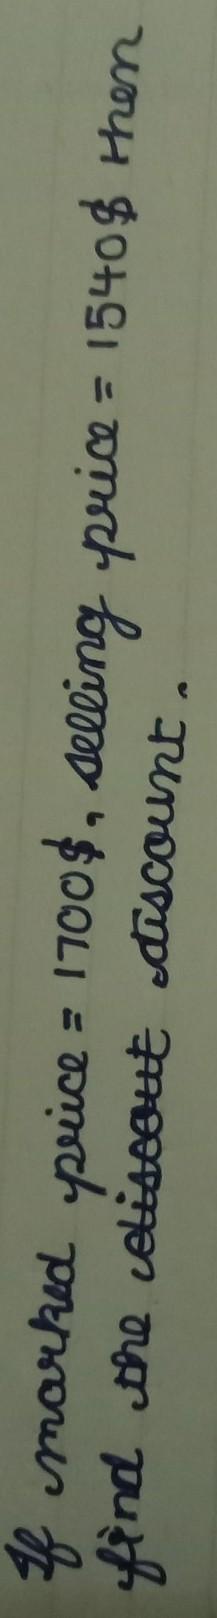 If marked price = 1700$, selling price = 1540$ then
find the discout discount.